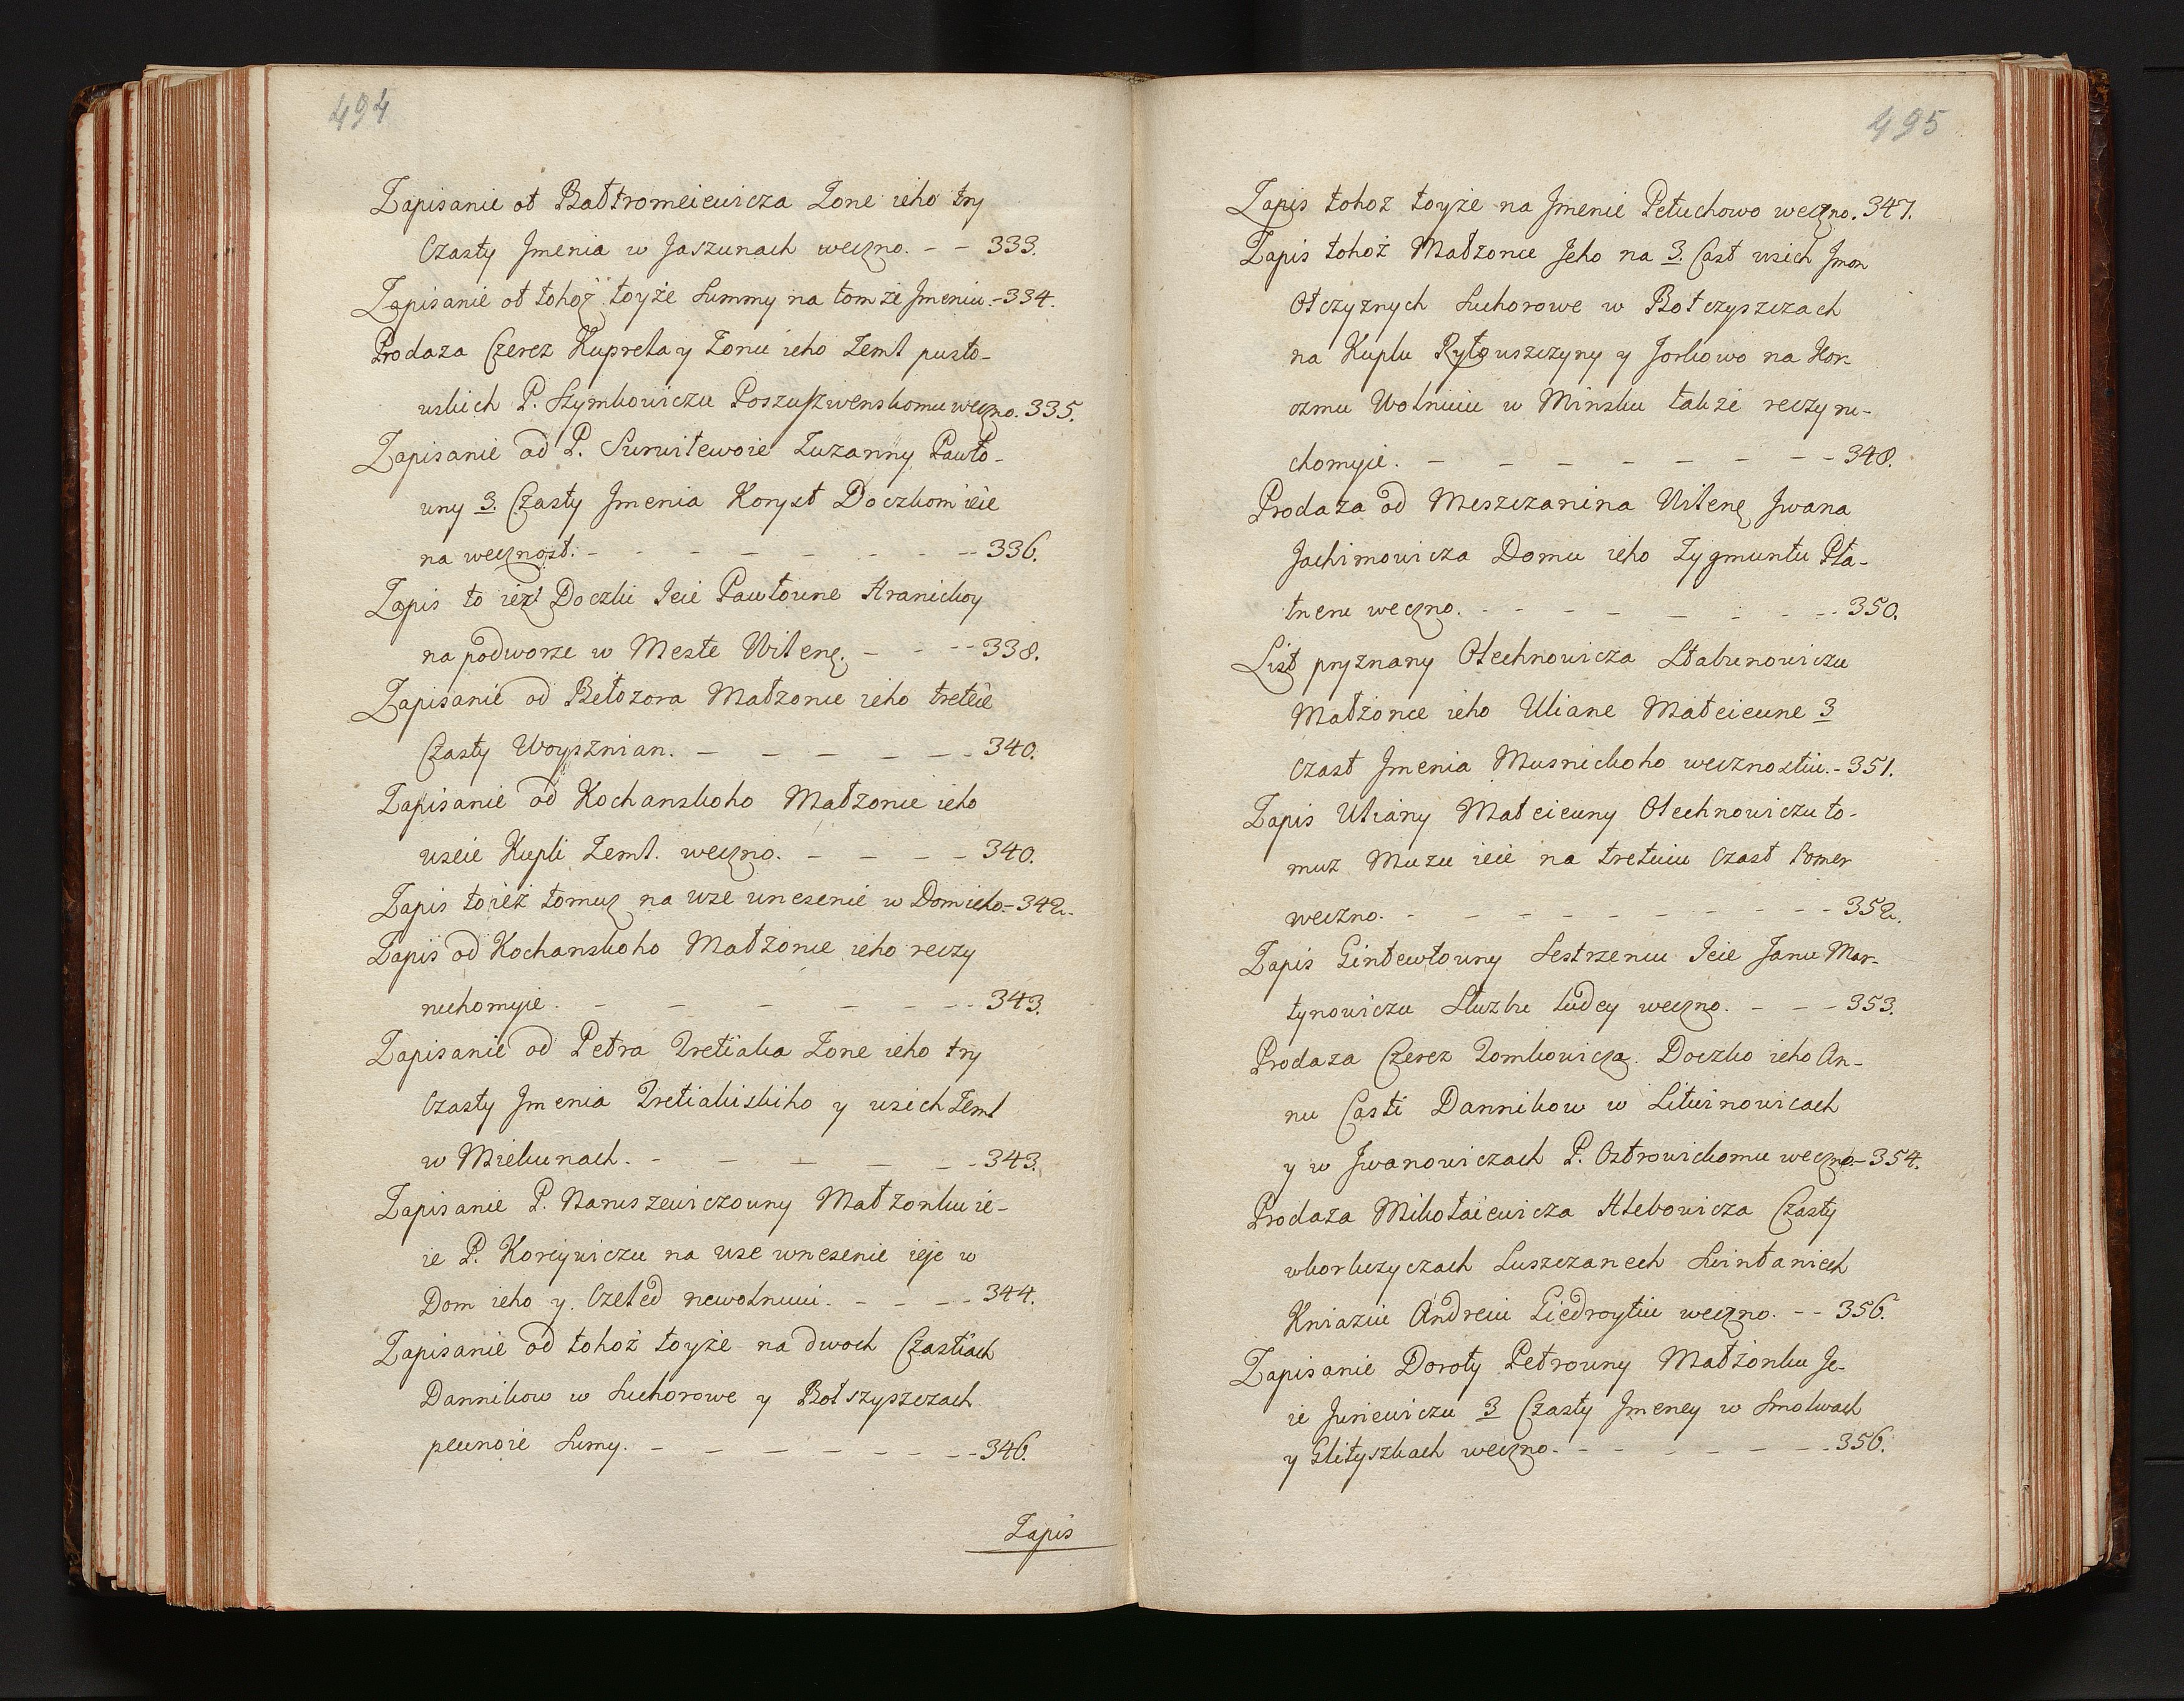 494
Zapisanie ot Bałtromeiewicza Zone ieho try
Czasty Jmenia w Jaszunach weczno. - - 333.
Zapisanie ot tohoż toyże Summy na tom że Jmeniu. - 334.
Prodaza Czerez Kuprela y Zonu ieho Zeml pusto-
wskich P. Szymkowiczu Poszuszwenskomu weczno. 335.
Zapisanie od P. Surwitewoie Zuzanny Pawło-
wny 3. Czasty Jmenia Koryst Doczkom ieie
na wecznost. - - - - - - - - 336.
Zapis to ież Doczki Ieie Pawłowne Hranickoy
na podworze w Meste Wilene. - - - - 338.
Zapisanie od Bełozora Małzonce ieho treteie
Czasty Woysznian. - - - - - - 340.
Zapisanie od Kochanskoho Małzonce ieho
wseie Kupli Zeml. weczno. - - - - 340.
Zapis toież tomuż na wse wnesenie w Dom ieho. - 342.
Zapis od Kochanskoho Małżonce ieho reczy
ruchomyie. - - - - - - - 343.
Zapisanie od Petra Tretiaka Zone ieho try
Czasty Jmenia Tretiakiskiho y wsich Zeml
w Mickunach. - - - - - - 343.
Zapisanie P. Naruszewiczowny Małżonku ie-
ie P. Korciwiczu na wse wnesenie ieje w
Dom ieho y. Czeled newolnuiu. - - - - 344.
Zapisanie od tohoż toyże na dwoch Czastiach
Dannikow w Suchorowe y Botszyszczach
pewnoie Sumy. - - - - - - - - 346.
Zapis
495
Zapis tohoz toyże na Jmenie Petuchowo weczno. 347.
Zapis tohoż Małzonce Jeho na 3. Cast wsich Jmen
Otczyznych Suchorowe w Botczyszczach
na Kuplu Ryłouszczyny y Jorkowo na Kor-
czmu Wolnuiu w Minsku także reczy ru-
chomyie. - - - - - - - - 348.
Prodaza od Meszczanina Wilene Jwana
Jachimowicza Domu ieho Zygmuntu Pła-
tneru weczno. - - - - - - - - 350.
List pryznany Olechnowicza Stabunowiczu
Małżonce ieho Uliane Mateiewne 3
Czast Jmenia Musnickoho wecznostiu. - 351.
Zapis Uliany Mateiewny Olechnowiczu to-
muz Muzu ieie na tretiuiu Czast Pomer
weczno. - - - - - - - - - - 352.
Zapis Gintewtowny Sestrzencu Ieie Janu Mar-
tynowiczu Słuzbu ludey weczno. - - - 353.
Prodaza Czerez Tomkowicza. Doczko ieho An-
nu Casti Dannikow w Litwinowicach
y w Jwanowiczach P. Ostrowickomu weczno - 354.
Prodaza Mikołaiewicza Hlebowicza Czasty
wborkszyczach Suszczanech Swintanich
Kniaziu Andreiu Giedroytiu weczno. - - 356.
Zapisanie Doroty Petrowny Małżonku Je-
ie Juriewiczu 3 Czasty Jmeney w Smolwach
y Glityszkach weczno. - - - - - - - 356.